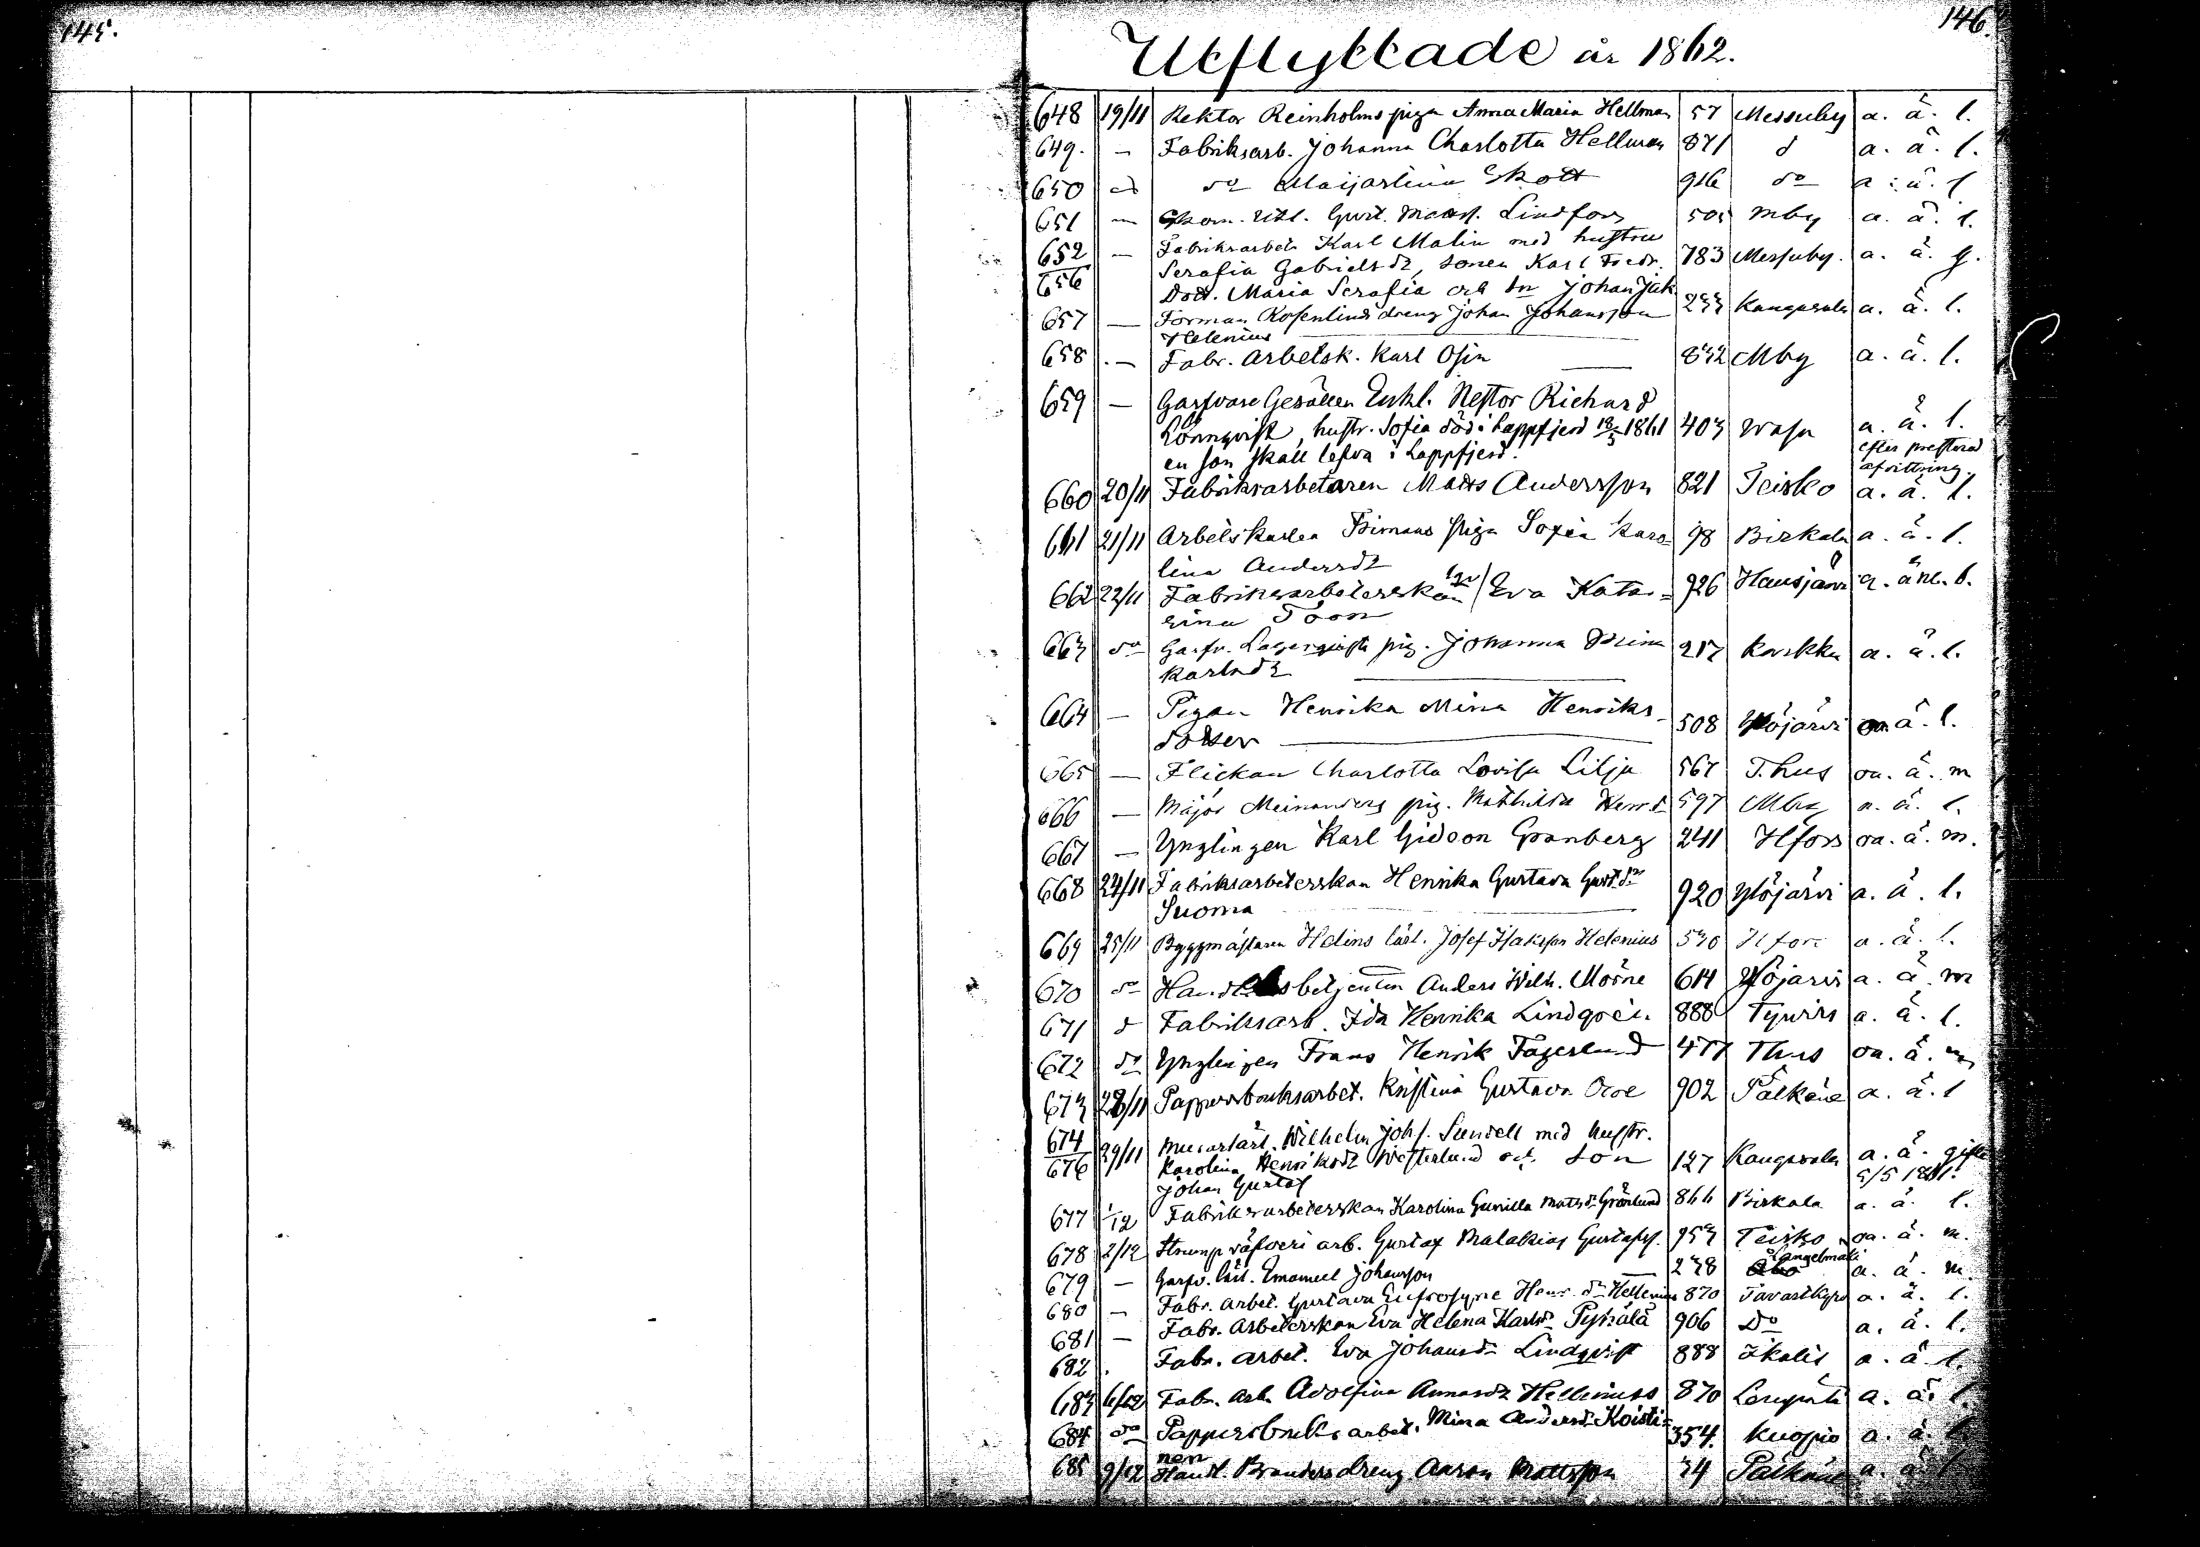 145.
146.
Utflyttade år 1862.
648 19/11 Rektor Reinholms piga Anna Maria Hellman 57 Messuby a. ä. l.
649. — Fabriksarb. Johanna Charlotta Hellman 871 d a. ä. l.
650 do do Maijastina Skott 916 do a. ä. l
651 — Gust. Lindfors 505 Mby a. ä. l.
652 — Fabriksarbet. Karl Malin med hustru 783 Messuby. a. ä. g.
656 Serafia Gabrielsdr, sonen Karl Fredr.
Dott. Maria Serafia och son Johan Jak
657 — Forman Rosenlinds dreng Johan Johansson 233 Kangasala a. ä. l.
Helenius
658 . — Fabr. Arbetsk. Karl Osin 832 Mby a. ä. l.
659 — Garfvare Gesällen Enkl. Nestor Richard
Lönnqvist, hustr. Sofia död i Lappfjerd 1861 403 Wasa a. ä. l.
en son skall lefva i Lappfjerd. efter
afvittring.
660 20/11 Fabriksarbetaren Matts Andersson 821 Teisko a. ä. l.
661 21/11 Arbetskarlen piga Sofia Karo- 98 Birkala a. ä. l.
lina Andersdr
662 22/11 Fabriksarbeterskan Eva Kata- 926 Hausjärvi a.
rina Toor
663 do Garfv. Lagerqvists pig. Johanna 217 Karkku a. ä. l.
Karlsdr
664 — Pigan Henrika Mina Henriks- 508 Ylöjärvi ä. l.
dotter
665 — Flickan Charlotta Lovisa Lilja 567 T.hus oa. ä. m
666 — Major Meinanders pig. Mathilda Henrd 597 Mby a. ä. l.
667 — Ynglingen Karl Gideon Granberg 241 Hfors oa. ä. m.
668 24/11 Fabriksarbeterskan Henrika Gustava Gustdr 920 Ylöjärvi a. ä. l.
Suoma
669 25/11 Byggmästaren Helins lärl. Josef Isaksson Helenius 530 Hfors a. ä. l.
670 do Anders Wilh. Mörne 614 Ylöjärvi a. ä. m
671 d Fabriksarb. Ida Henrika Lindqvi. 888 Tyrvis a. ä. l.
672 do Ynglingen Frans Henrik Fagerlund 477 Thus oa. ä. m
673 28/11 Pappersbruksarbet. Kristina Gustava 902 Pälkäne a. ä. l
674 29/11 Murarlärl. Wilhelm Johs. Sundell med hustr.
676 Karolina Henriksdr Westerlund och son 127 Kangasala a. ä. gifte
Johan Gustaf 5/5 1861.
677 1/12 Fabriksarbeterskan Karolina Gunilla Mattsdr Grönlund 866 Birkala a. ä. l.
678 2/12 arb. Gustaf Malakias Gustafss. 953 Teisko oa. ä. m.
679 — Garfv. lärl. Emanuel Johansson 238 Längelmäki a. ä. m.
680 — Fabr. Arbet. Gustava Eufrosyne Henr. dr Hellenius 870 Tavastkyro a. ä. l.
681 — Fabr. Arbeterskan Eva Helena Karlsdr Pyhälä 906 Do a. ä. l.
682 . Fabr. Arbet. Eva Johansdr Lindqvist 888 Ikalis a. ä. l.
683 6/12 Fabr. Arb. Adolfina Hellenius 870 Lempäälä a. ä. l.
684 do Pappersbruks arbet. Mina Andersdr Koisti- 354. Kuopio a. ä. l.
nen
685 9/12 Handl. Branders dreng Aaron Mattsson 34 Pälkäne a. ä. l